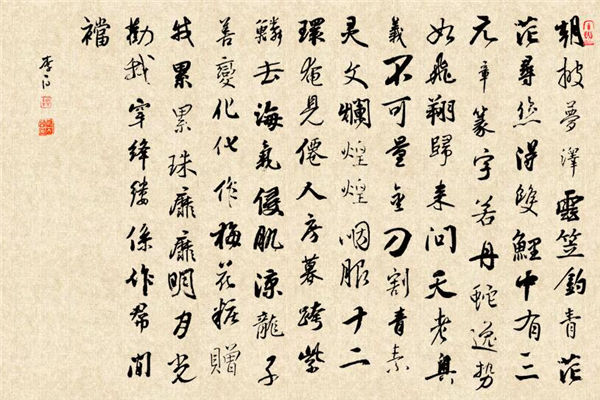 朝披夢澤雲笠釣青茫
茫尋絲得雙鯉中有三
元章篆字若丹蛇逸勢
如飛翔歸来問天老奥
義不可量金刀割青素
灵文爛煌煌咽服十二
環奄見僊人房暮跨紫
鱗去海氣侵肌涼龍子
善變化化作梅花粧贈
我累累珠靡靡明月光
勸我穿絳縷係作帬間
襠
李白